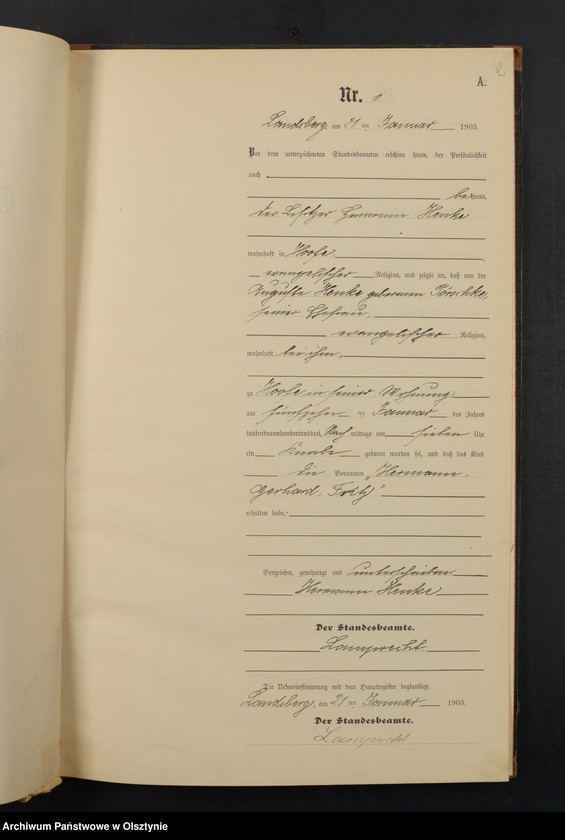 2.
A.
Nr. 1.
Landsberg, am 21 ten Januar 1903.
Vor dem unterzeichneten Standesbeamten erschien heute, der Persönlichkeit
nach
bekannt,
der Besitzer Hermann Henke
wohnhaft in Hoofe
evangelischer Religion, und zeigte an, daß von der
Auguste Henke geborenen Pörschke,
seiner Ehefrau,
evangelischer Religion,
wohnhaft bei ihm,
zu Hoofe in seiner Wohnung
am fünfzehn ten Januar des Jahres
tausendneunhundertunddrei, Nachmittags um sieben Uhr
ein Knabe geboren worden sei, und daß das Kind
die Vornamen „Hermann
Gerhard, Fritz"
erhalten habe.
Vorgelesen, genehmigt und unterschrieben
Hermann Henke
Der Standesbeamte.
Lamprecht.
Die Uebereinstimmung mit dem Hauptregister beglaubigt.
Landsberg, am 21 ten Januar 1903.
Der Standesbeamte.
Lamprecht
Archiwum Państwowe w Olsztynie